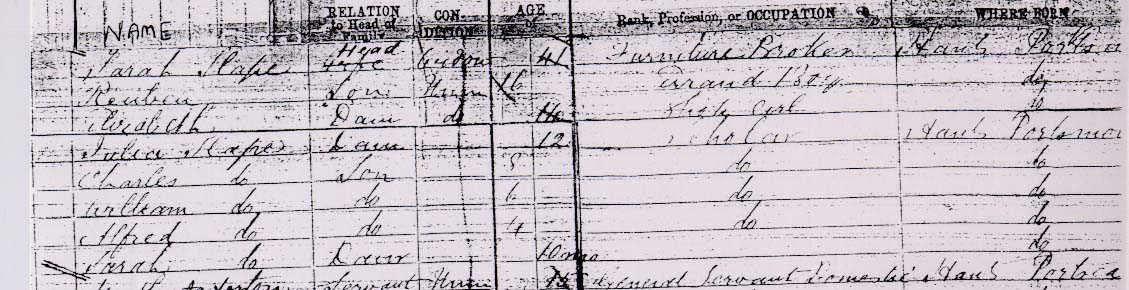 NAME RELATION to Head of Family CON DITION AGE of Rank, Profession, or OCCUPATION WHERE BORN
Sarah Slape Head Widow 41 Furniture Broker Hants
Reuben Son Unm 16 Errand Boy do
Elizabeth Daur do Girl do
Julia Slape Daur 12 Scholar Hants Portsmou
Charles do Son do do
William do do 6 do do
Alfred do do 4 do do
Sarah do Daur 10 mo do
Servant Unm General Servant Domestic Hants Portsea